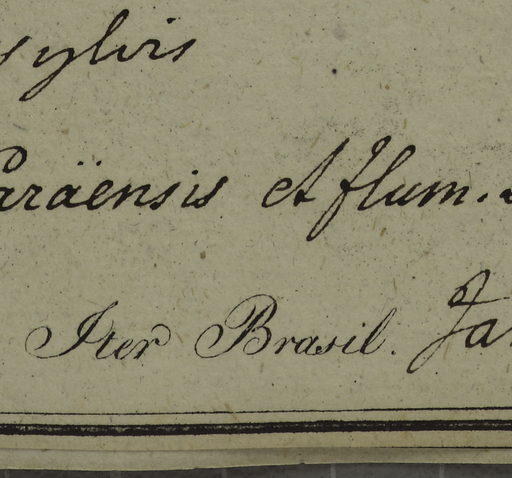 sylvis
Paräensis et flum.
Iter Brasil. Ja